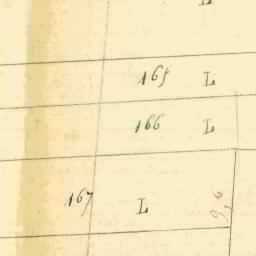 L
165 L
166 L
167 L